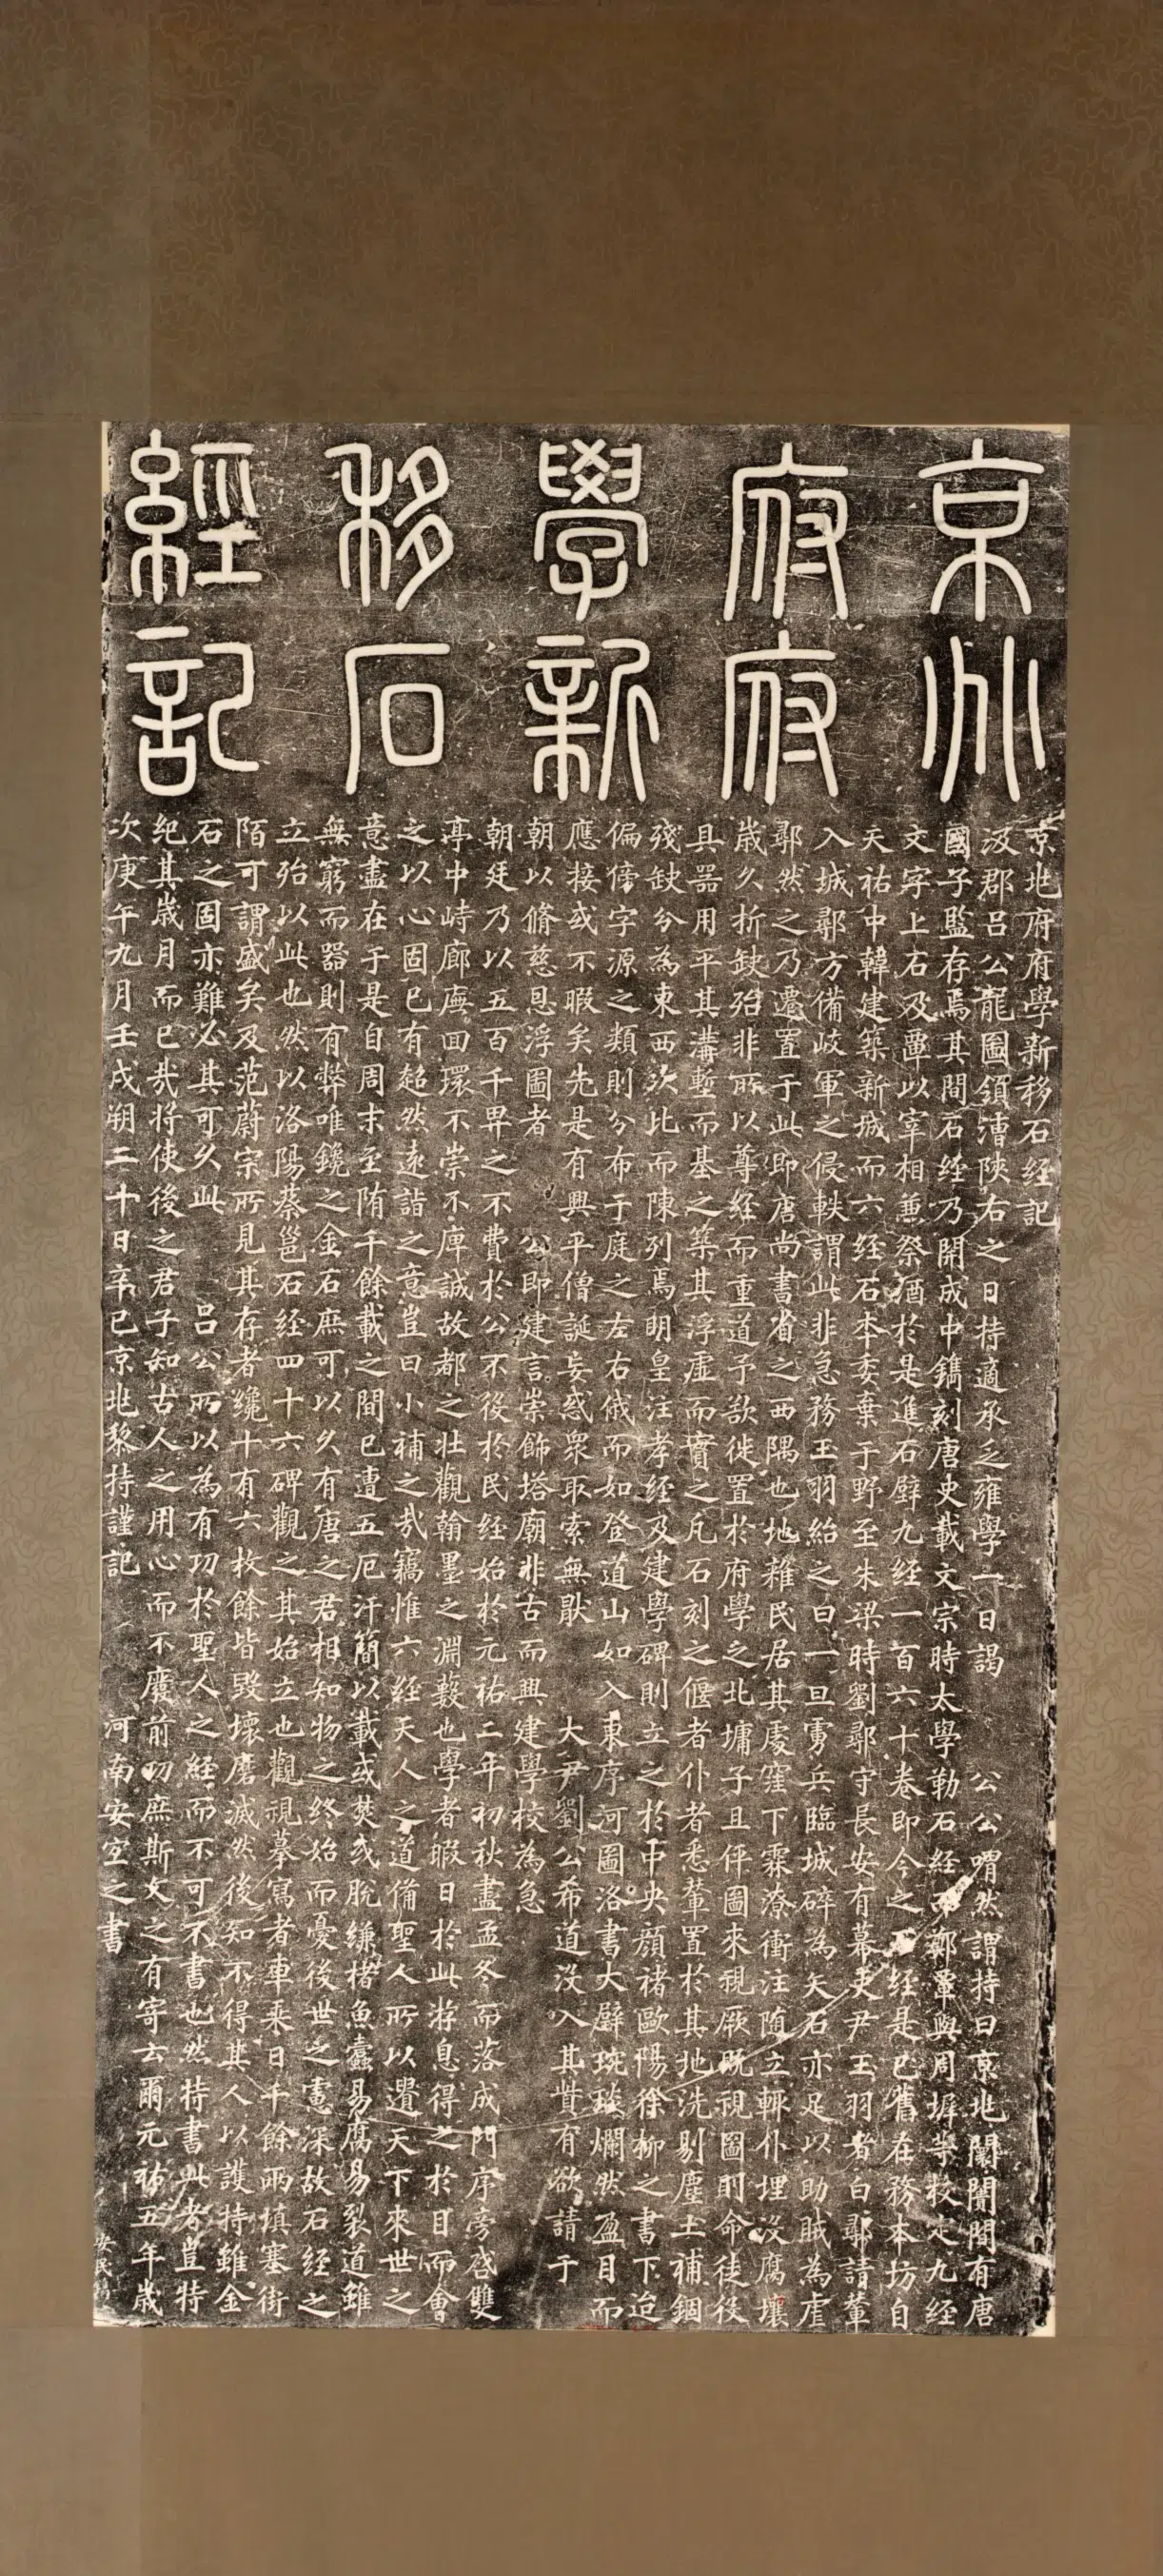 京兆
府府
學新
移石
經記
京兆府府學新移石經記
汲郡呂公龍圖領漕陝右之日持適承乏雍學一日謁 公公喟然謂持曰京兆闤闠間有唐
國子監存焉其間石經乃開成中鐫刻唐史載文宗時太學勒石經而鄭覃與周墀等校定九經
文字上石及覃以宰相兼祭酒於是進石壁九經一百六十卷即今之石經是已舊在務本坊自
天祐中韓建築新城而六經石本委棄于野至朱梁時劉鄩守長安有幕吏尹玉羽者白鄩請輦
入城鄩方備岐軍之侵軼謂此非急務玉羽紿之曰一旦虜兵臨城碎為矢石亦足以助賊為虐
鄩然之乃遷置于此即唐尚書省之西隅也地雜民居其處窪下霖潦衝注随立輒仆埋沒腐壤
歲久折缺殆非所以尊經而重道予欲徙置於府學之北墉子且伻圖來視厥既視圖則命徒役
具器用平其溝塹而基之築其浮虛而實之凡石刻之偃者仆者悉輦置於其地洗剔塵土補錮
殘缺分為東西次比而陳列焉明皇注孝經及建學碑則立之於中央顏禇歐陽徐柳之書下迨
偏傍字源之類則分布于庭之左右俄而如登道山如入東序河圖洛書大璧琬琰爛然盈目而
應接或不暇矣先是有興平僧誕妄惑眾取索無猒 大尹劉公希道沒入其貲有欲請于
朝以脩慈恩浮圖者 公即建言崇飾塔廟非古而興建學校為急
朝廷乃以五百千畀之不費於公不役於民經始於元祐二年初秋盡孟冬而落成門序旁啓雙
亭中峙廊廡回環不崇不庳誠故都之壯觀翰墨之淵藪也學者暇日於此游息得之於目而會
之以心固已有超然遠詣之意豈曰小補之哉竊惟六經天人之道備聖人所以遺天下來世之
意盡在于是自周末至隋千餘載之間已遭五厄汗簡以載或焚或脫縑楮魚蠹易腐易裂道雖
無窮而器則有弊唯鑱之金石庶可以久有唐之君相知物之終始而憂後世之慮深故石經之
立殆以此也然以洛陽蔡邕石經四十六碑觀之其始立也觀視摹寫者車乘日千餘兩填塞街
陌可謂盛矣及范蔚宗所見其存者纔十有六枚餘皆毀壞磨滅然後知不得其人以護持雖金
石之固亦難必其可久此 呂公所以為有功於聖人之經而不可不書也然持書此者豈特
紀其歲月而已哉将使後之君子知古人之用心而不廢前功庶斯文之有寄云爾元祐五年歲
次庚午九月壬戌朔二十日辛巳京兆黎持謹記 河南安宜之書
安民鐫